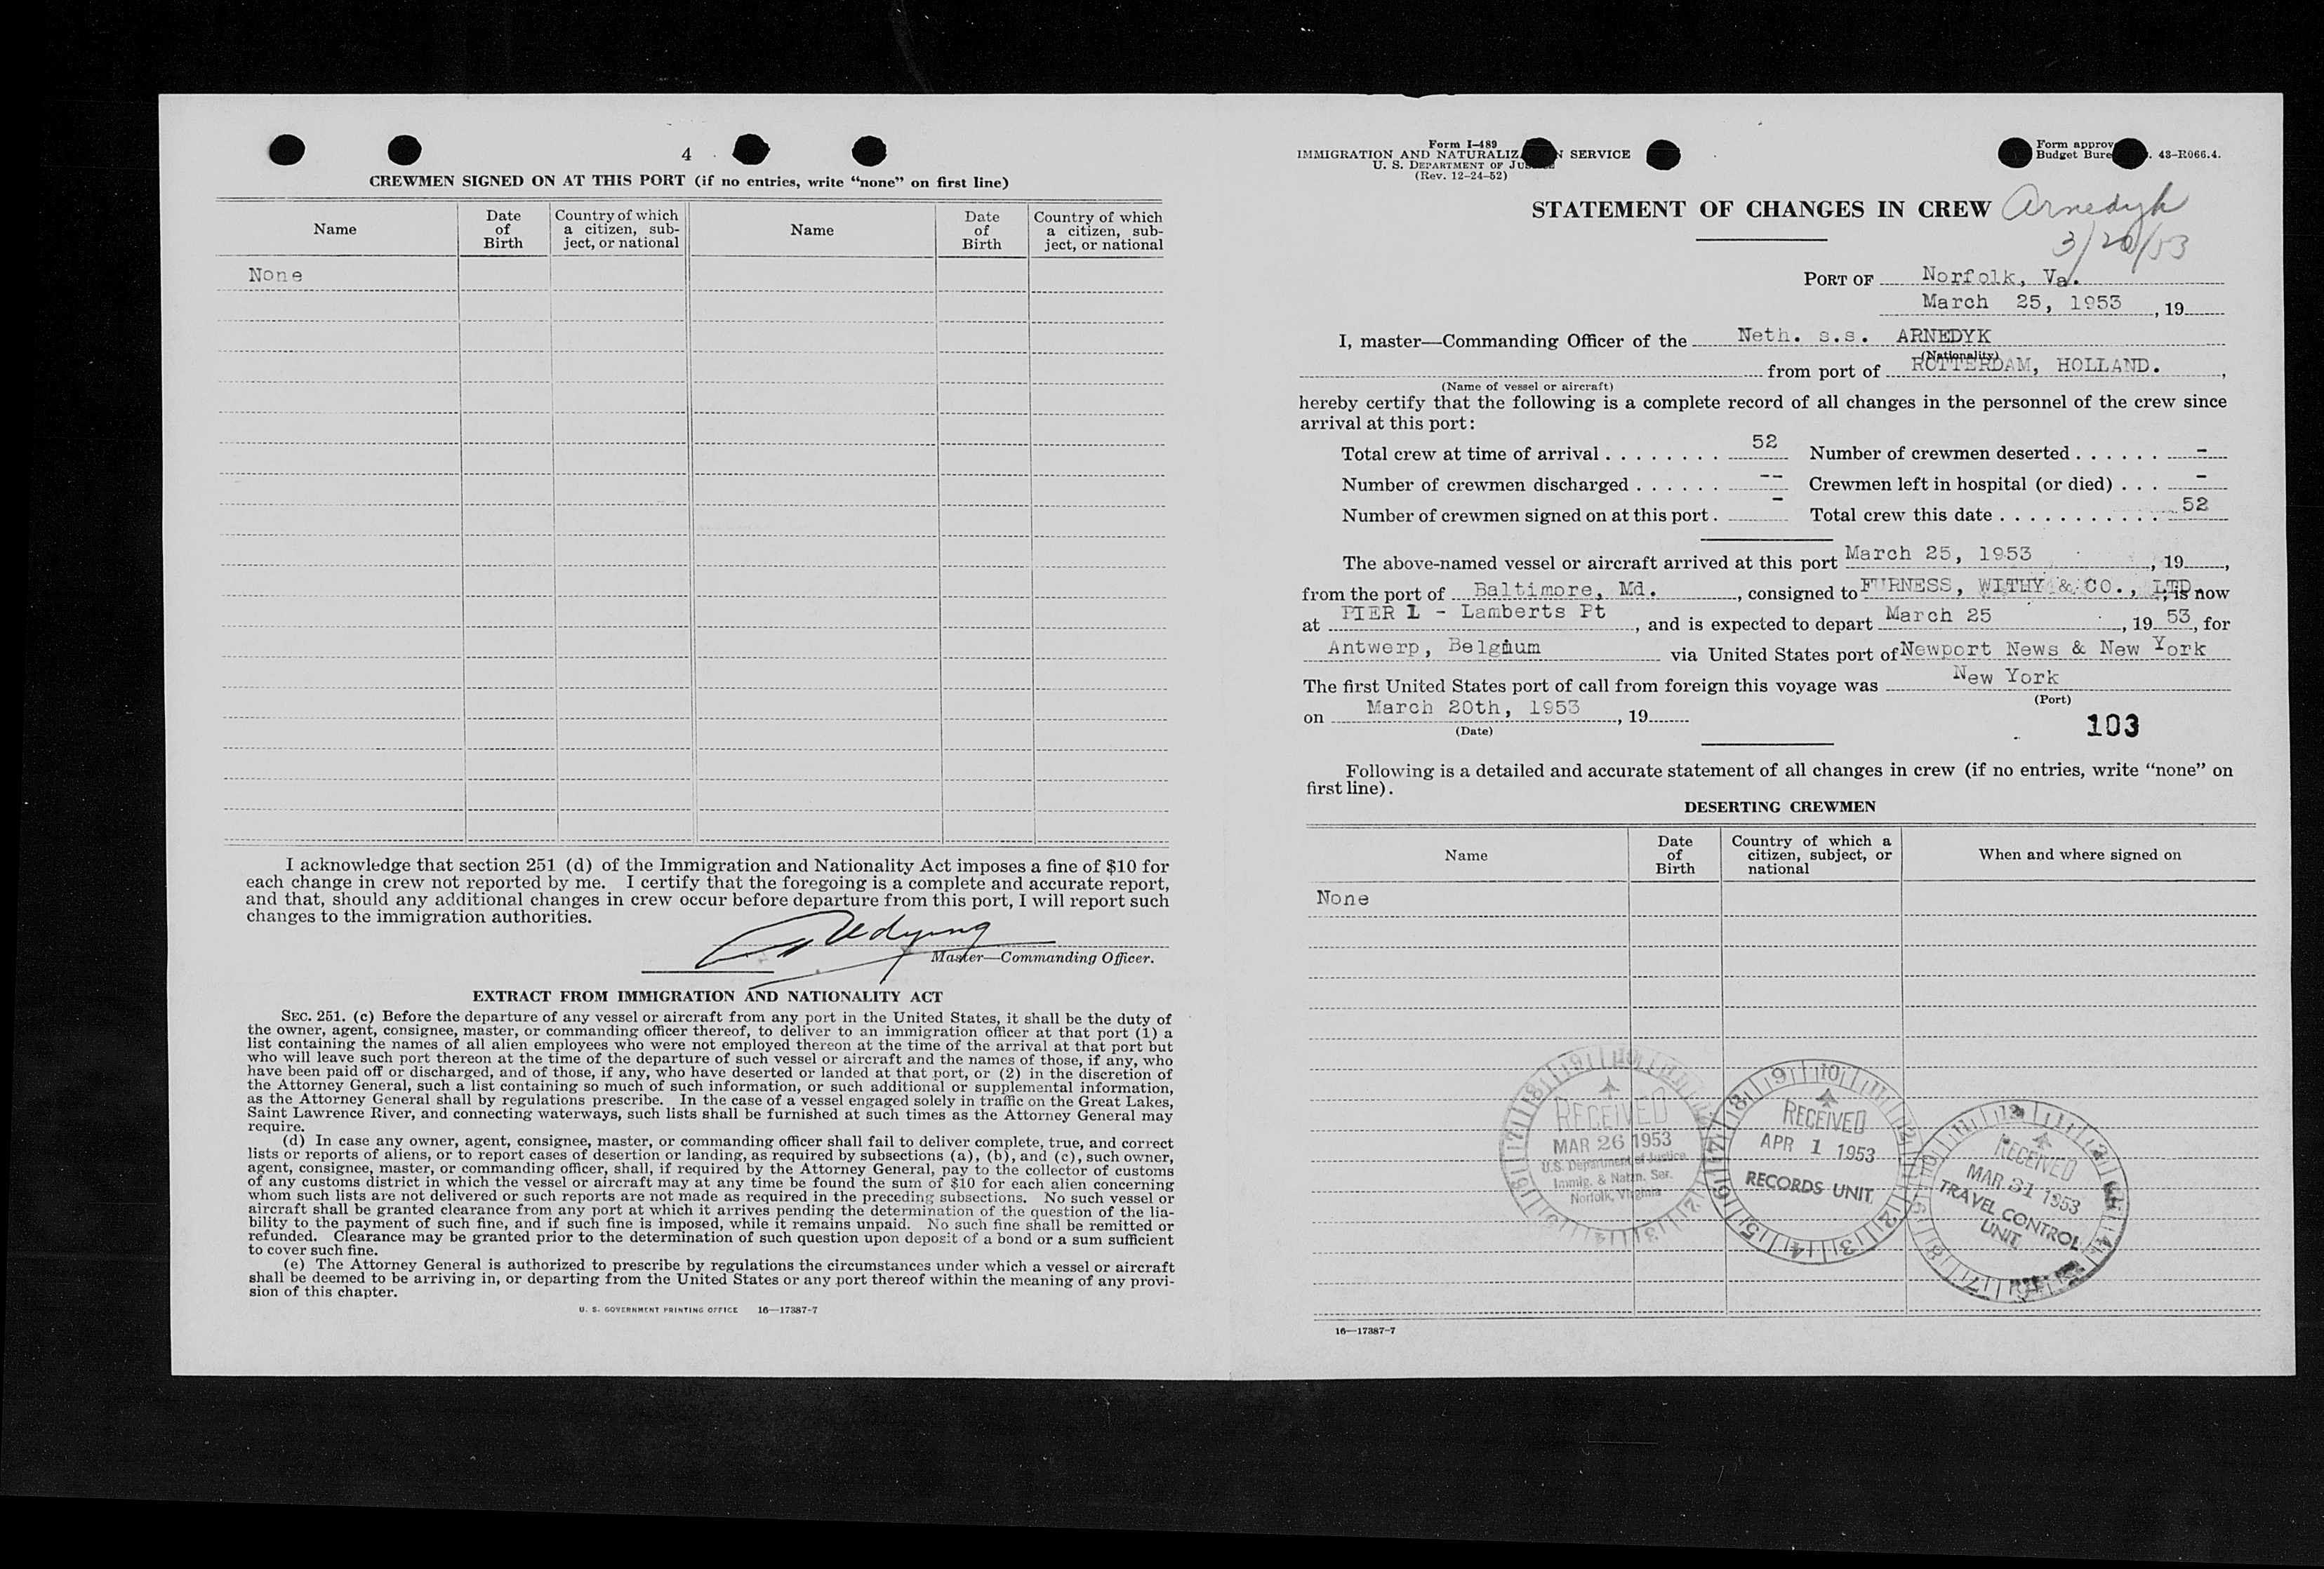 4
CREWMEN SIGNED ON AT THIS PORT (if no entries, write “none” on first line)
Name
Date of Birth
Country of which a citizen, subject, or national
Name
Date of Birth
Country of which a citizen, subject, or national
None
I acknowledge that section 251 (d) of the Immigration and Nationality Act imposes a fine of $10 for
each change in crew not reported by me. I certify that the foregoing is a complete and accurate report,
and that, should any additional changes in crew occur before departure from this port, I will report such
changes to the immigration authorities.
Master—Commanding Officer.
EXTRACT FROM IMMIGRATION AND NATIONALITY ACT
SEC. 251. (c) Before the departure of any vessel or aircraft from any port in the United States, it shall be the duty of
the owner, agent, consignee, master, or commanding officer thereof, to deliver to an immigration officer at that port (1) a
list containing the names of all alien employees who were not employed thereon at the time of the arrival at that port but
who will leave such port thereon at the time of the departure of such vessel or aircraft and the names of those, if any, who
have been paid off or discharged, and of those, if any, who have deserted or landed at that port, or (2) in the discretion of
the Attorney General, such a list containing so much of such information, or such additional or supplemental information,
as the Attorney General shall by regulations prescribe. In the case of a vessel engaged solely in traffic on the Great Lakes,
Saint Lawrence River, and connecting waterways, such lists shall be furnished at such times as the Attorney General may
require.
(d) In case any owner, agent, consignee, master, or commanding officer shall fail to deliver complete, true, and correct
lists or reports of aliens, or to report cases of desertion or landing, as required by subsections (a), (b), and (c), such owner,
agent, consignee, master, or commanding officer, shall, if required by the Attorney General, pay to the collector of customs
of any customs district in which the vessel or aircraft may at any time be found the sum of $10 for each alien concerning
whom such lists are not delivered or such reports are not made as required in the preceding subsections. No such vessel or
aircraft shall be granted clearance from any port at which it arrives pending the determination of the question of the lia-
bility to the payment of such fine, and if such fine is imposed, while it remains unpaid. No such fine shall be remitted or
refunded. Clearance may be granted prior to the determination of such question upon deposit of a bond or a sum sufficient
to cover such fine.
(e) The Attorney General is authorized to prescribe by regulations the circumstances under which a vessel or aircraft
shall be deemed to be arriving in, or departing from the United States or any port thereof within the meaning of any provi-
sion of this chapter.
U. S. GOVERNMENT PRINTING OFFICE 16—17387-7
Form I-489
IMMIGRATION AND NATURALIZ N SERVICE
U. S. DEPARTMENT OF JU
(Rev. 12-24-52)
Form approv
Budget Bure . 43-R066.4.
STATEMENT OF CHANGES IN CREW Arnedyk
3/20/53
PORT OF Norfolk, Va.
March 25, 1953, 19
I, master—Commanding Officer of the Neth. s.s. ARNEDYK
(Nationality)
from port of ROTTERDAM, HOLLAND.,
(Name of vessel or aircraft)
hereby certify that the following is a complete record of all changes in the personnel of the crew since
arrival at this port:
Total crew at time of arrival . . . . . . . . 52 Number of crewmen deserted . . . . . . -
Number of crewmen discharged . . . . . . -- Crewmen left in hospital (or died) . . . -
Number of crewmen signed on at this port . - Total crew this date . . . . . . . . . . . . 52
The above-named vessel or aircraft arrived at this port March 25, 1953, 19,
from the port of Baltimore, Md., consigned to FURNESS, WITHY & CO., LTD.; is now
at PIER L - Lamberts Pt, and is expected to depart March 25, 19 53, for
Antwerp, Belgium via United States port of Newport News & New York
The first United States port of call from foreign this voyage was New York
(Port)
on March 20th, 1953, 19
(Date)
103
Following is a detailed and accurate statement of all changes in crew (if no entries, write “none” on
first line).
DESERTING CREWMEN
Name
Date of Birth
Country of which a citizen, subject, or national
When and where signed on
None
RECEIVED
MAR 26 1953
U.S. Department of Justice
Immig. & Natzn. Ser.
Norfolk, Virginia
RECEIVED
APR 1 1953
RECORDS UNIT
RECEIVED
MAR 31 1953
TRAVEL CONTROL
UNIT
16—17387-7